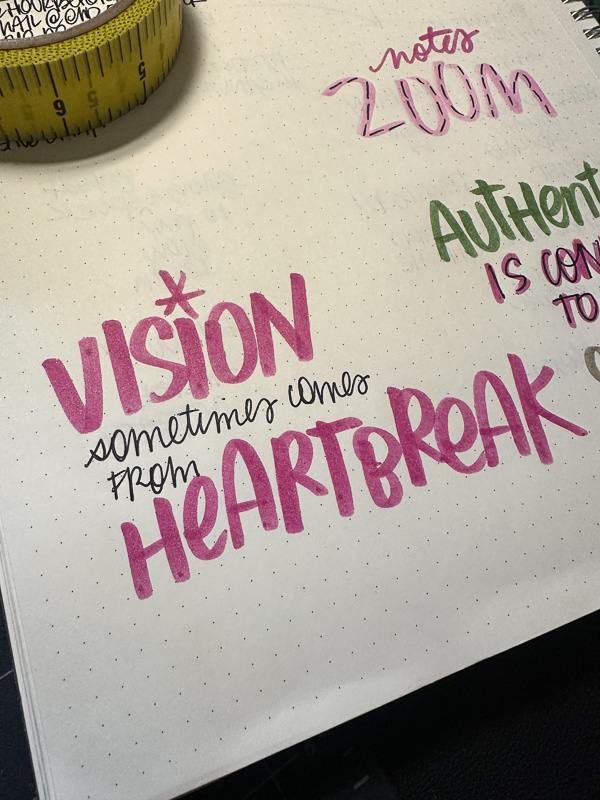 notes
ZOOM
AUTHENT
IS CON
TO
VISION
sometimes comes
FROM
HeARTBReAK
6
5